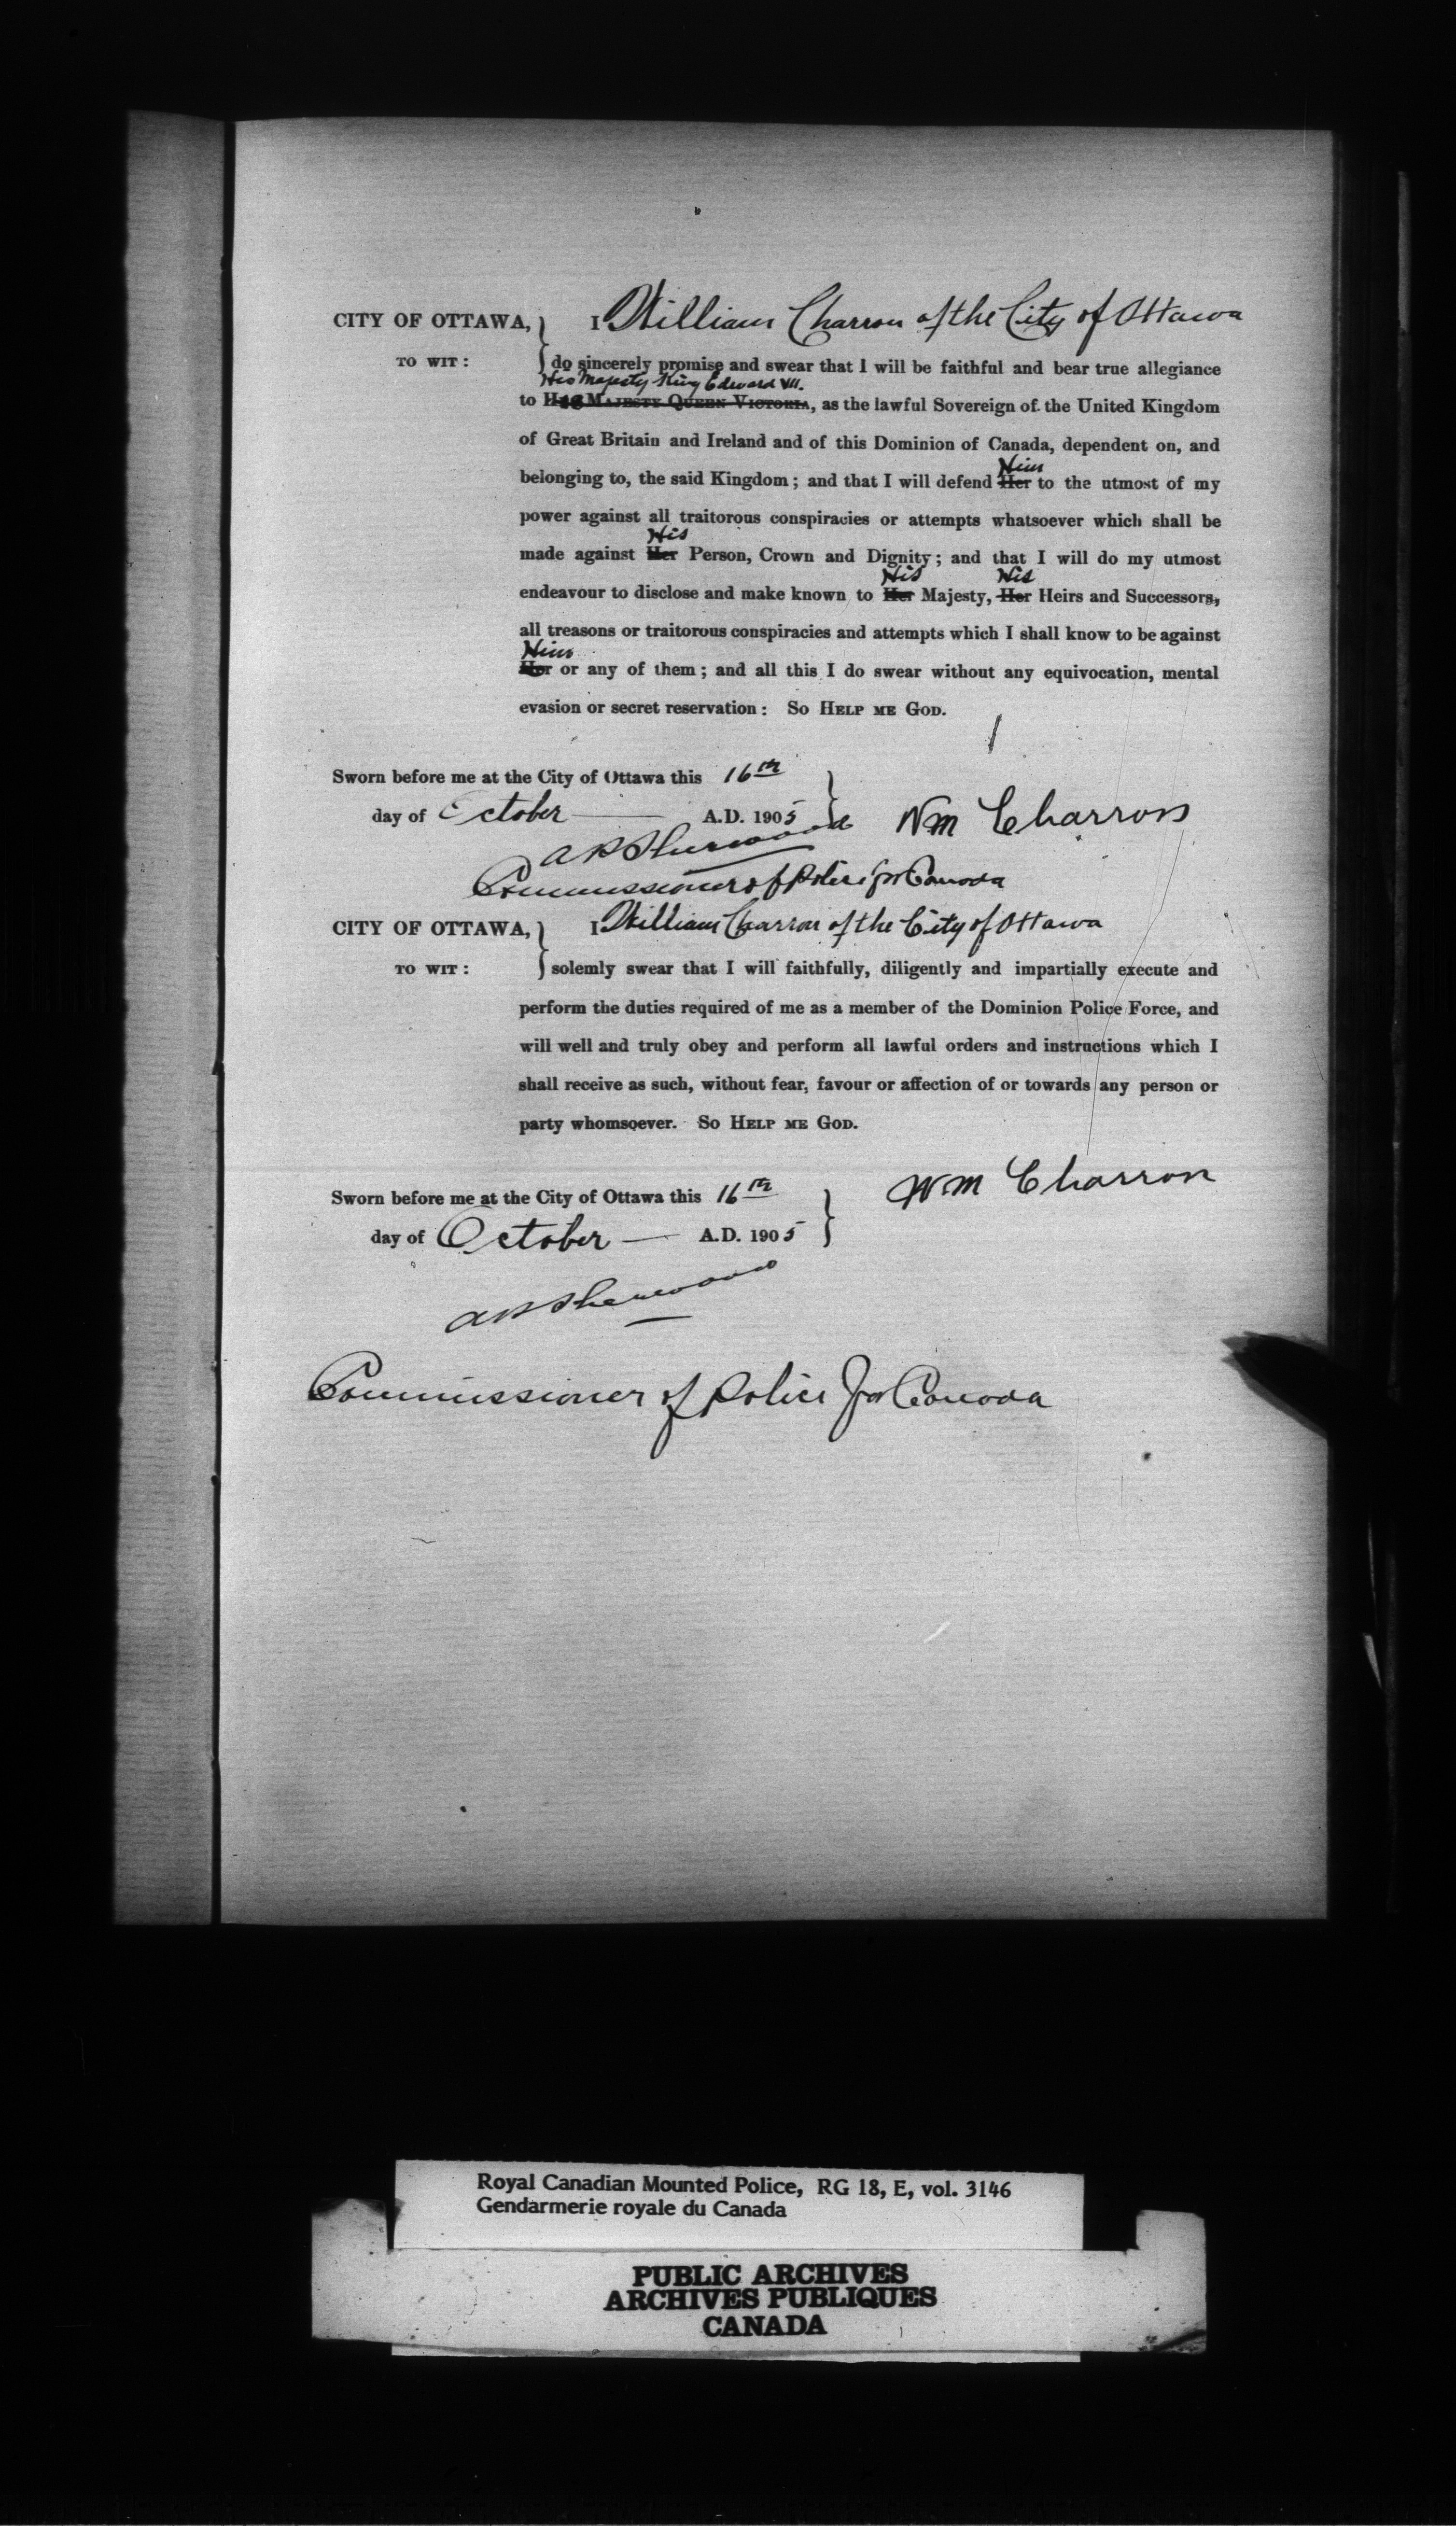 CITY OF OTTAWA, } I William Charron of the City of Ottawa
TO WIT: } do sincerely promise and swear that I will be faithful and bear true allegiance
His Majesty King Edward VII.
to Her Majesty Queen Victoria, as the lawful Sovereign of the United Kingdom
of Great Britain and Ireland and of this Dominion of Canada, dependent on, and
Him
belonging to, the said Kingdom; and that I will defend Her to the utmost of my
power against all traitorous conspiracies or attempts whatsoever which shall be
His
made against Her Person, Crown and Dignity; and that I will do my utmost
His His
endeavour to disclose and make known to Her Majesty, Her Heirs and Successors,
all treasons or traitorous conspiracies and attempts which I shall know to be against
Him
Her or any of them; and all this I do swear without any equivocation, mental
evasion or secret reservation: So Help me God.
Sworn before me at the City of Ottawa this 16th }
day of October A.D. 1905 } Wm Charron
A P Sherwood
Commissioner of Police for Canada
CITY OF OTTAWA, } I William Charron of the City of Ottawa
TO WIT: } solemly swear that I will faithfully, diligently and impartially execute and
perform the duties required of me as a member of the Dominion Police Force, and
will well and truly obey and perform all lawful orders and instructions which I
shall receive as such, without fear, favour or affection of or towards any person or
party whomsoever. So Help me God.
Wm Charron
Sworn before me at the City of Ottawa this 16th }
day of October — A.D. 1905 }
A P Sherwood
Commissioner of Police for Canada
Royal Canadian Mounted Police, RG 18, E, vol. 3146
Gendarmerie royale du Canada
PUBLIC ARCHIVES
ARCHIVES PUBLIQUES
CANADA